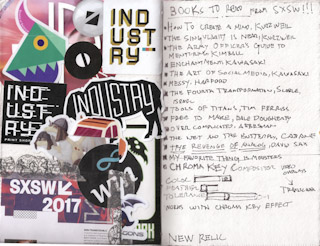 IND
UST
RY
IND
UST
RY
PRINT SHOP
INDUSTRY
win
SXSW
2017
BOOKS TO READ FROM SXSW!!!
HOW TO CREATE A MIND, KURZWEIL
THE SINGULARITY IS NEAR, KURZWEIL
THE ARMY OFFICER'S GUIDE TO
MENTORING, KIMBALL
ENCHANTMENT, KAWASAKI
THE ART OF SOCIAL MEDIA, KAWASAKI
THE FOURTH TRANSFORMATION, SCOBLE,
ISRAEL
TOOLS OF TITANS, TIM FERRISS
FREE TO MAKE, DALE DOUGHERTY
OVER COMPLICATED, ARBESMAN
THE ANT AND THE
THE REVENGE OF ANALOG, DAVID SAX
MY FAVORITE THING IS MONSTERS
CHROMA KEY
COLOR
FEATHER
TOLERANCE
WORKS WITH CHROMA KEY EFFECT
NEW RELIC